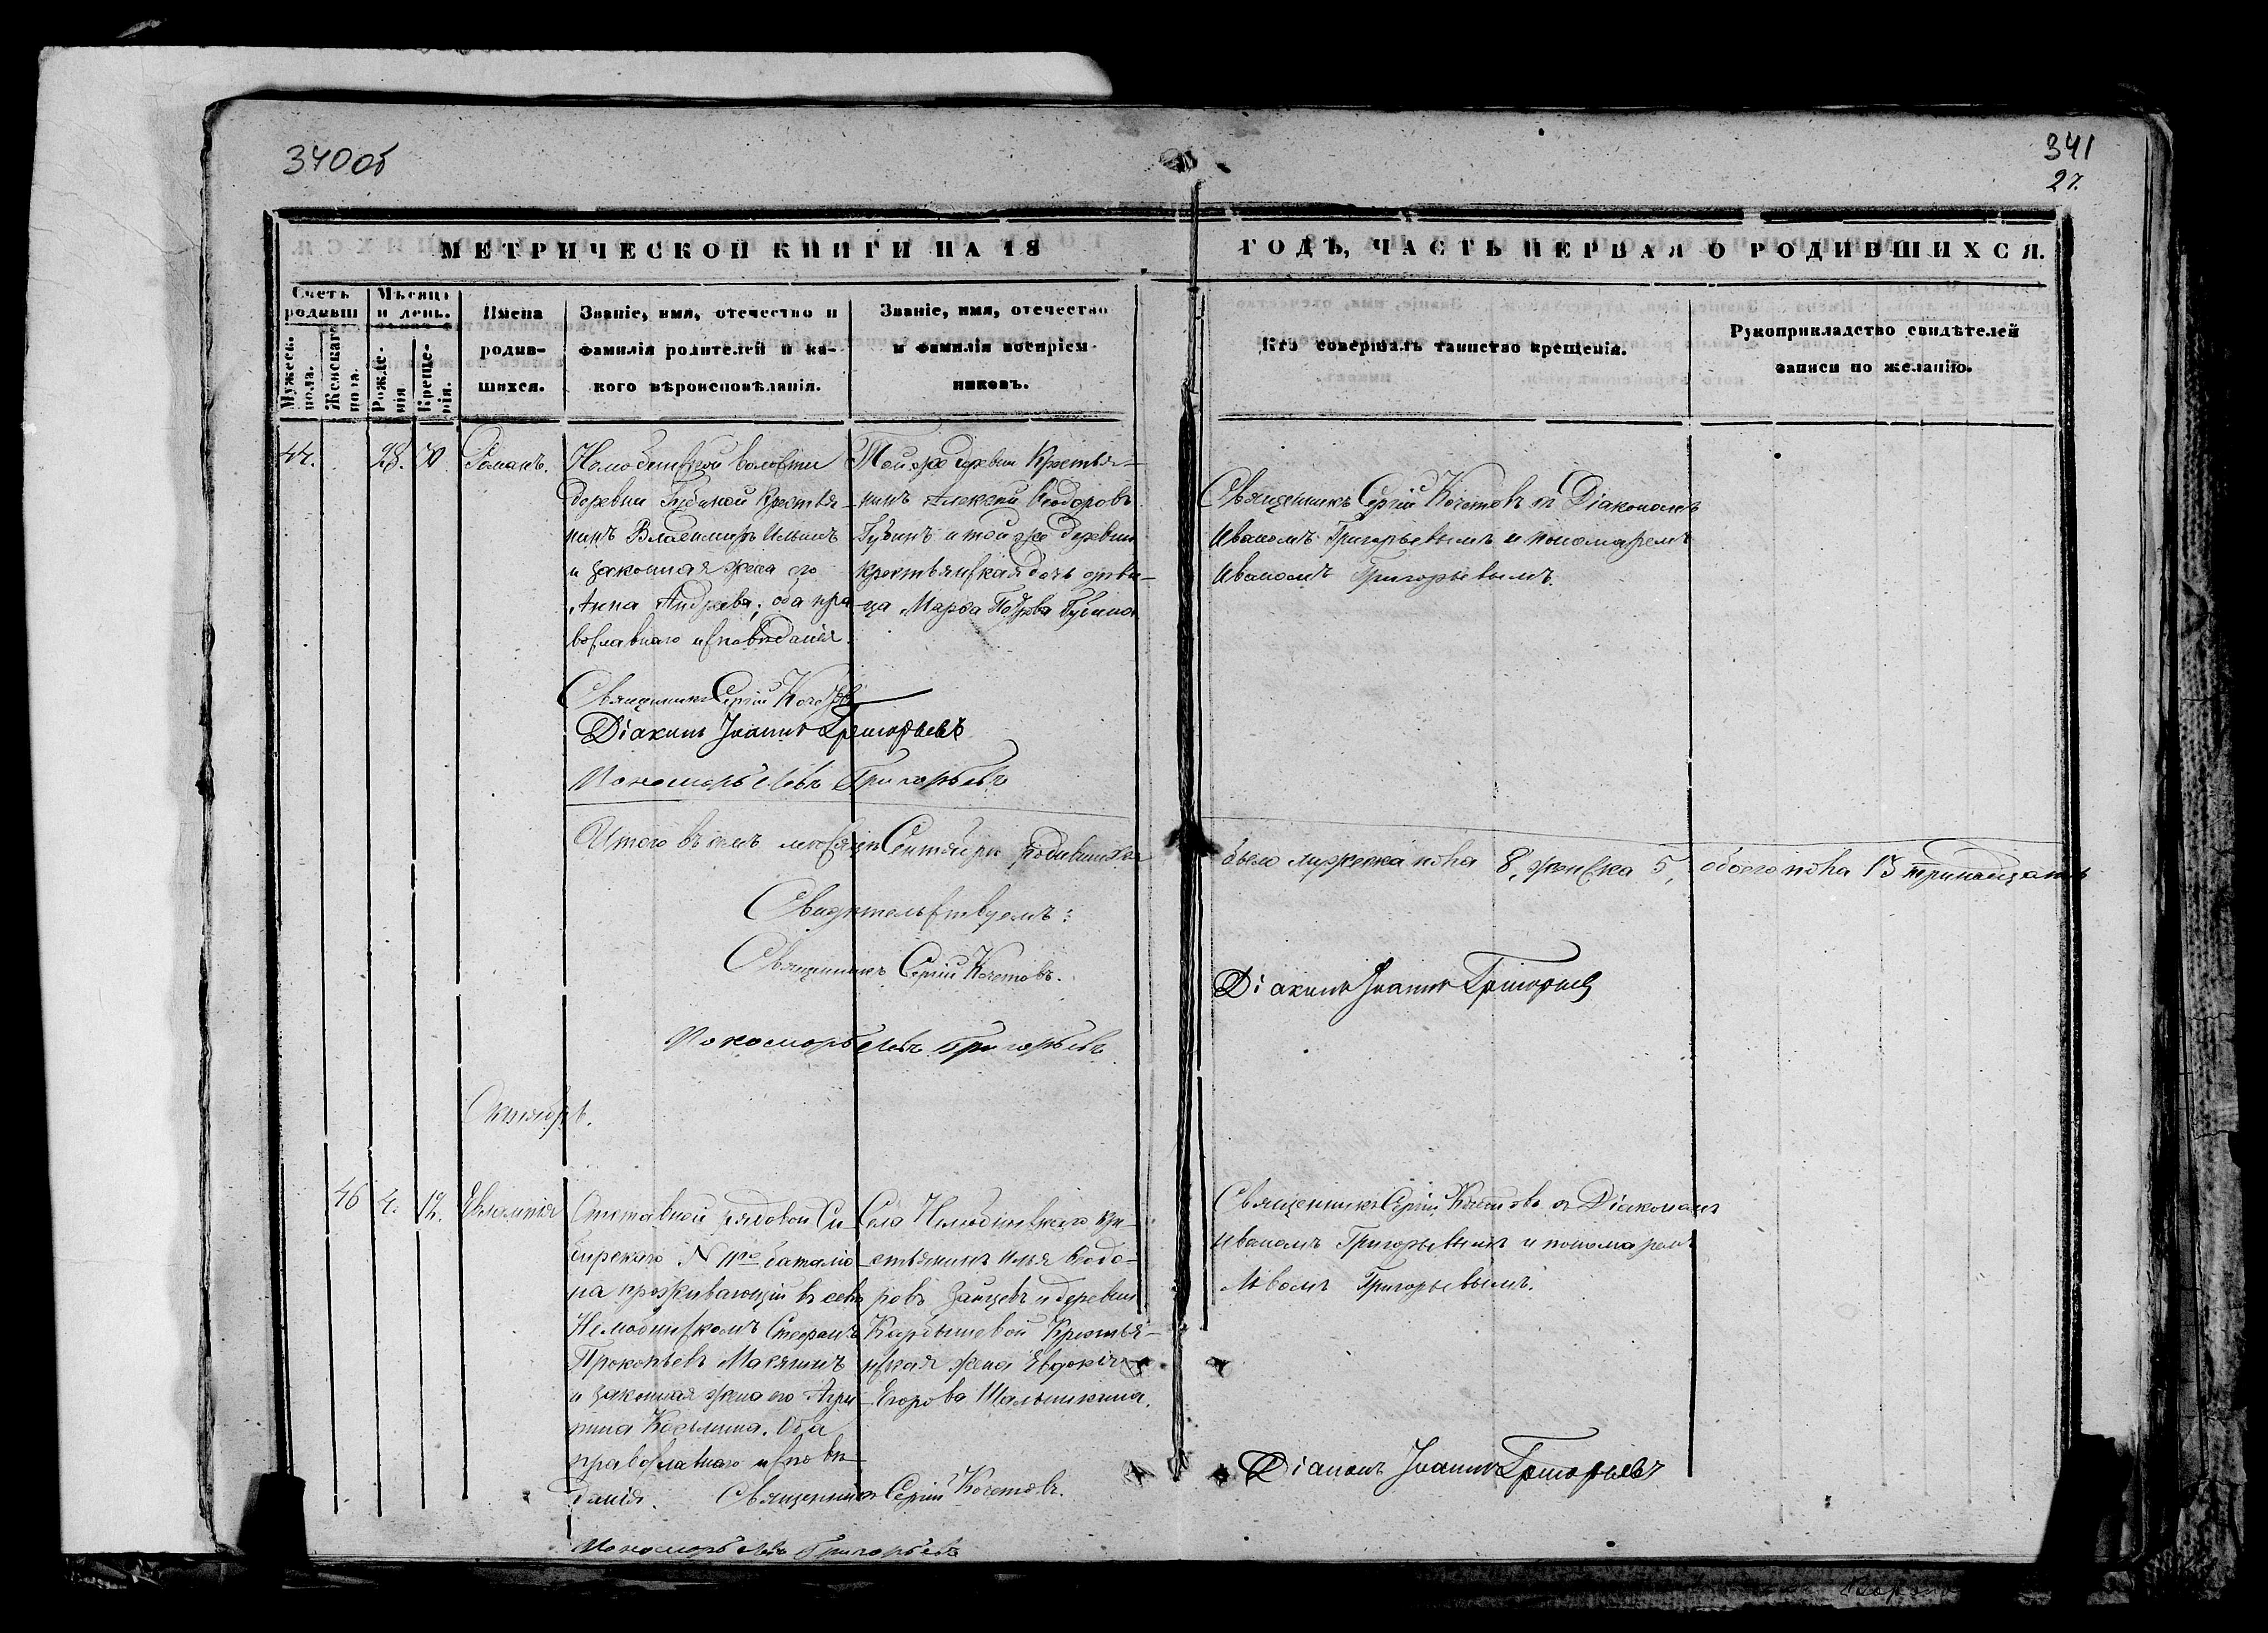 340об
341
27.
МЕТРИЧЕСКОЙ КНИГИ НА 18
ГОДЪ, ЧАСТЬ ПЕРВАЯ О РОДИВШИХСЯ.
Счетъ родивш
Мужеск. пола.
Женскаго пола.
Мѣсяцъ и день.
Рожде-
нія
Креще-
нія.
Имена
родив-
шихся.
Званіе, имя, отечество и
фамилія родителей и ка-
кого вѣроисповѣданія.
Званіе, имя, отечество
и фамилія воспріем-
никовъ.
Кто совершалъ таинство крещенія.
Рукоприкладство свидѣтелей
записи по желанію.
44. 28. 30. Романъ.
Нелюбинской волости
деревни Губиной крестья-
нинъ Владимиръ Ильинъ
и законная жена его
Анна Андреева; оба пра-
вославнаго исповѣданія.
Той же деревни Крестья-
нинъ Алексѣй Ѳеодоровъ
Губинъ и той же деревни
крестьянская дочь дѣви-
ца Марѳа Губина
Священникъ Сергій Кочетовъ съ Діакономъ
Иваномъ Григорьевымъ и пономаремъ
Иваномъ Григорьевымъ.
Священникъ Сергій Кочетовъ
Діаконъ Іоаннъ Григорьевъ
Пономарь Левъ Григорьевъ
Итого въ семъ мѣсяцѣ Сентябрѣ родившихся было мужеска пола 8, женска 5, обоего пола 13 тринадцать
Свидѣтельствуемъ:
Священникъ Сергій Кочетовъ.
Діаконъ Іоаннъ Григорьевъ
Пономарь Левъ Григорьевъ
Октябрь.
46 4. 12. Евлампія
Отставной рядовой Си-
бирскаго N баталіо-
на проживающій въ селѣ
Нелюбинскомъ Стефанъ
Прокопьевъ Макянинъ
и законная жена его Агри-
пина Козьмина. Оба
православнаго исповѣ-
данія.
Села Нелюбинскаго кре-
стьянинъ Илья Ѳеодо-
ровъ Зайцевъ и деревни
Карбышевой Крестья-
нская жена Евдокія
Егорова Шалышкина.
Священникъ Сергій Кочетовъ съ Діакономъ
Иваномъ Григорьевымъ и пономаремъ
Львомъ Григорьевымъ.
Священникъ Сергій Кочетовъ.
Діаконъ Іоаннъ Григорьевъ
Пономарь Левъ Григорьевъ